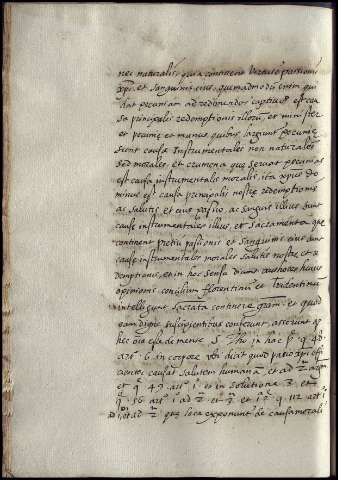 nec naturalis, quia continent virtutē passionis
xpi, et sanguinis eius, quemadmodū enim qui
dat pecuniam ad redimendos captivos est cau
sa principalis redemptionis illorū, et minister
et pecuniæ et manus quibus largiunt pecuniæ
sunt causæ Instrumentales non naturales
sed morales, et crumena quæ servat pecunias
est causa instrumentalis moralis, ita xpus Do
minus est causa principalis nostræ redemptionis
ac salutis et eius passio, ac sanguis illius sunt
causæ instrumentales illius et sacramenta quæ
continent pretiū passionis et sanguinis eius sunt
causæ instrumentales morales salutis nostræ et re
demptionis, et in hoc sensu dicunt auctores huius
opinionis concilium florentinū et Tridentinū
intelligunt sacrāta continere gratiam et quod
eam dignis suscipientibus conferunt, asserunt
hec esse de mente S. Tho in hac p. q 48.
art° 6 in corpore ubi dicit quod passio xpi effi
cienter causat salutem humanā et ad
et q 49 art° 1 et in solutione 3 et
q 56 art° 1 ad 2 et q 112 art° 1
et ad 2 quæ loca exponunt de causa morali